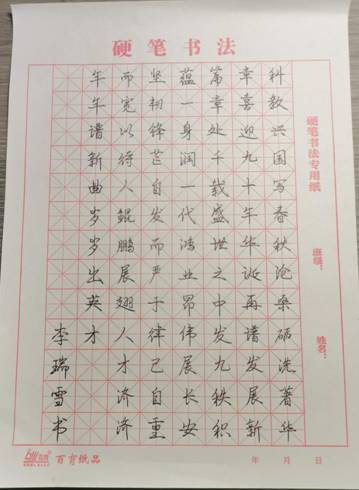 硬笔书法
硬笔书法专用纸 班级： 姓名：
科教兴国写春秋沧桑砺洗著华
章喜迎九十年华诞再谱发展新
篇章处千载盛世之中发九秩积
蕴一身润一代鸿业昂伟展长安
坚韧锋芒自发而严于律己自重
而宽以待人鲲鹏展翅人才济济
年年谱新曲岁岁出英才
李瑞雪书
百育纸品
年 月 日